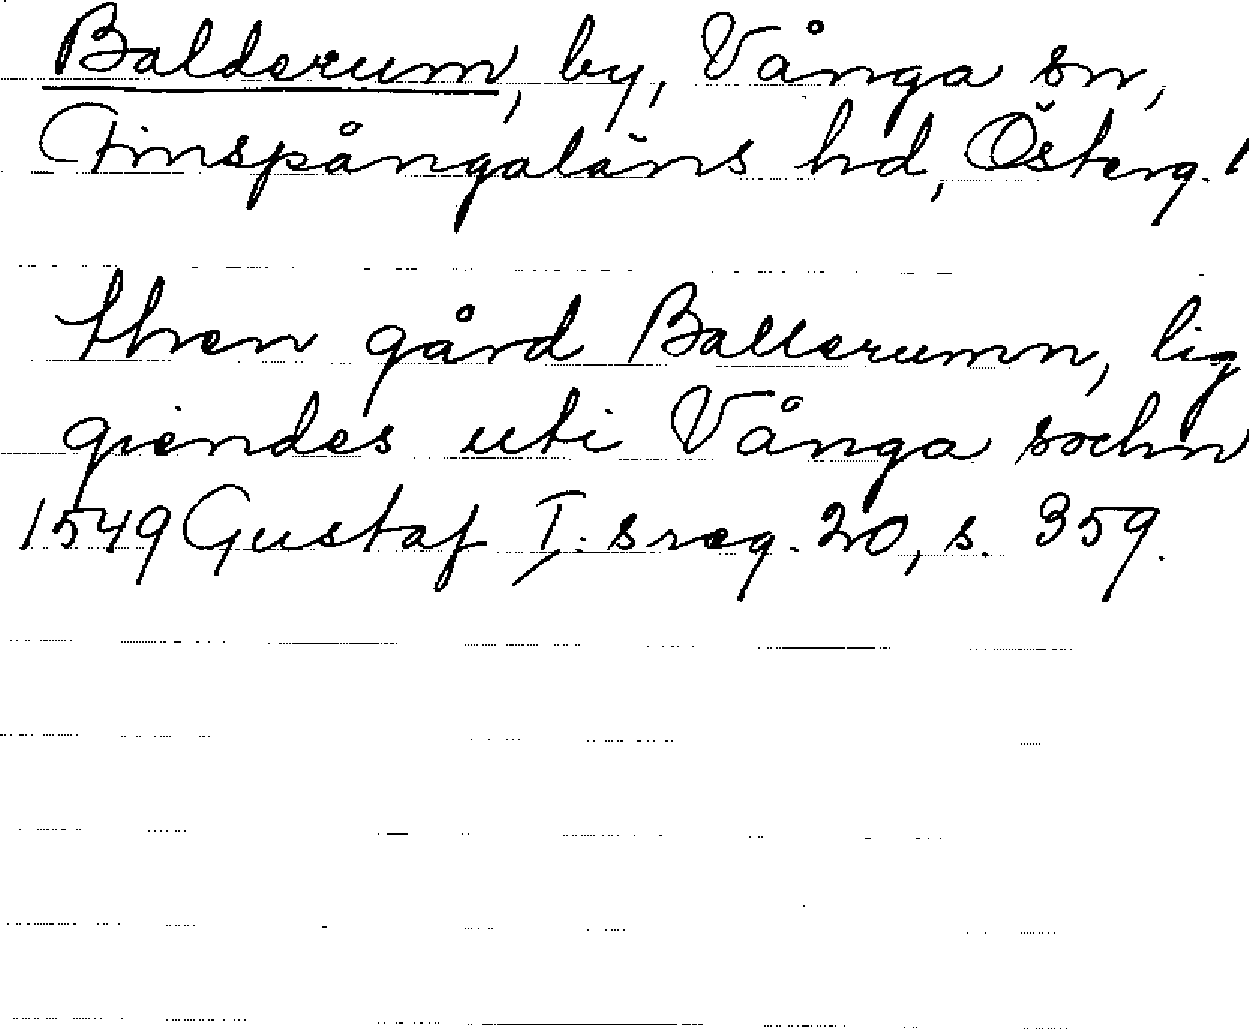 Balderum, by, Vånga sn,
Finspångaläns hd, Österg. l
then gård Ballerumn, lig
giendes uti Vånga sochn
1549 Gustaf I:s reg. 20, s. 359.